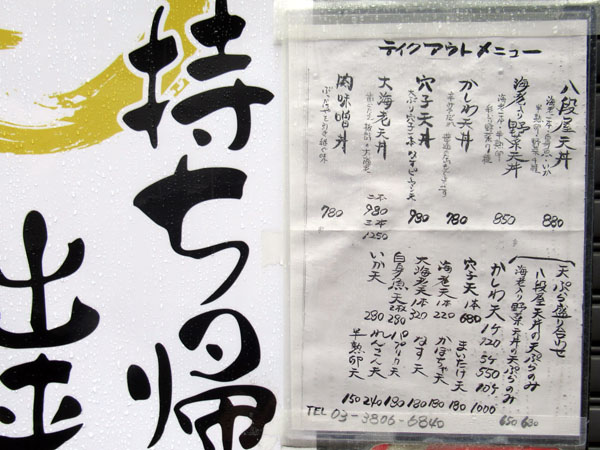 持ち帰
出
テイクアウトメニュー
八段屋天丼
880
海老入り野菜天丼
850
かしわ天丼
780
穴子天丼
980
大海老天丼
二本
980
三本
1250
肉味噌丼
780
天ぷら盛り合わせ
八段屋天丼の天ぷらのみ
680
海老入り野菜天丼の天ぷらのみ
650
かしわ天 1ケ 120
5ケ 550
10ケ 1000
穴子天 1本 680
海老天 1本 220
大海老天 1本 320
白身魚天 2枚 280
いか天 280
まいたけ天 180
かぼちゃ天 180
なす天 180
パプリカ天 180
れんこん天 240
半熟卵天 150
TEL 03-3806-6840